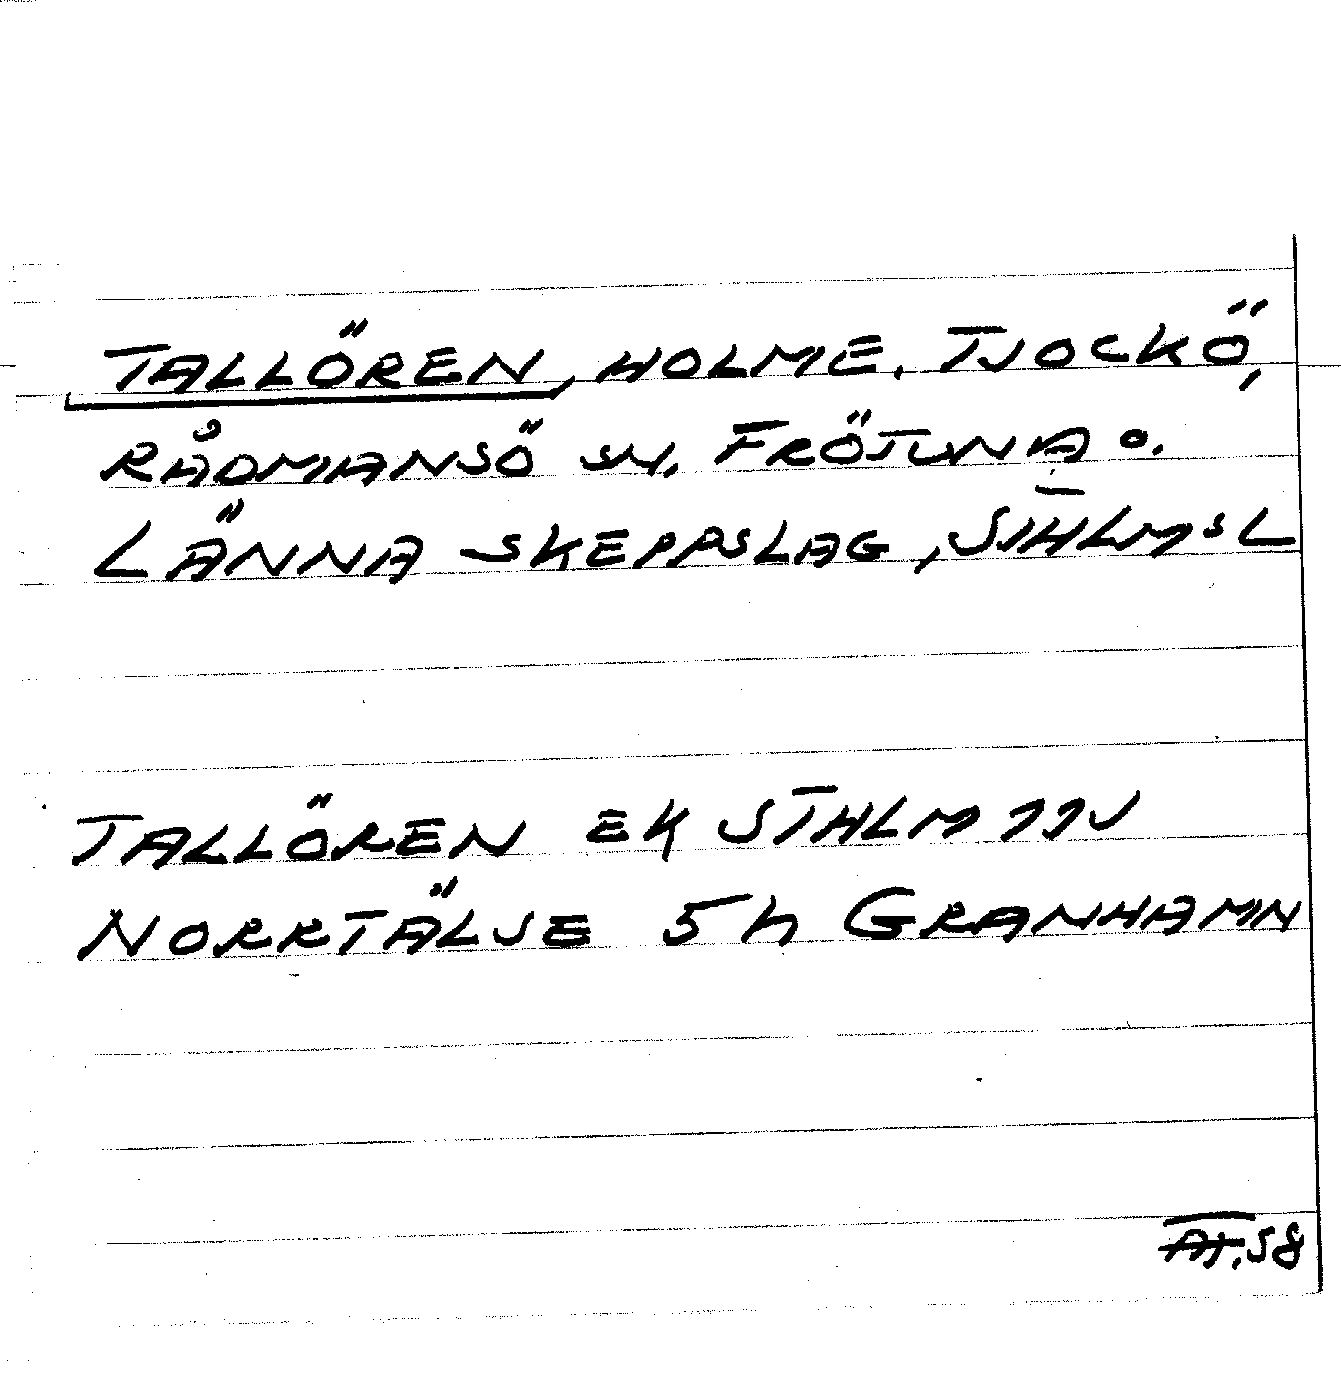 TALLÖREN, HOLME, TJOCKÖ,
RÅDMANSÖ SN, FRÖTUNA O.
LÄNNA SKEPPSLAG, STHLMSL
TALLÖREN EK STHLM 11V
NORRTÄLJE 5h GRANHAMN
58